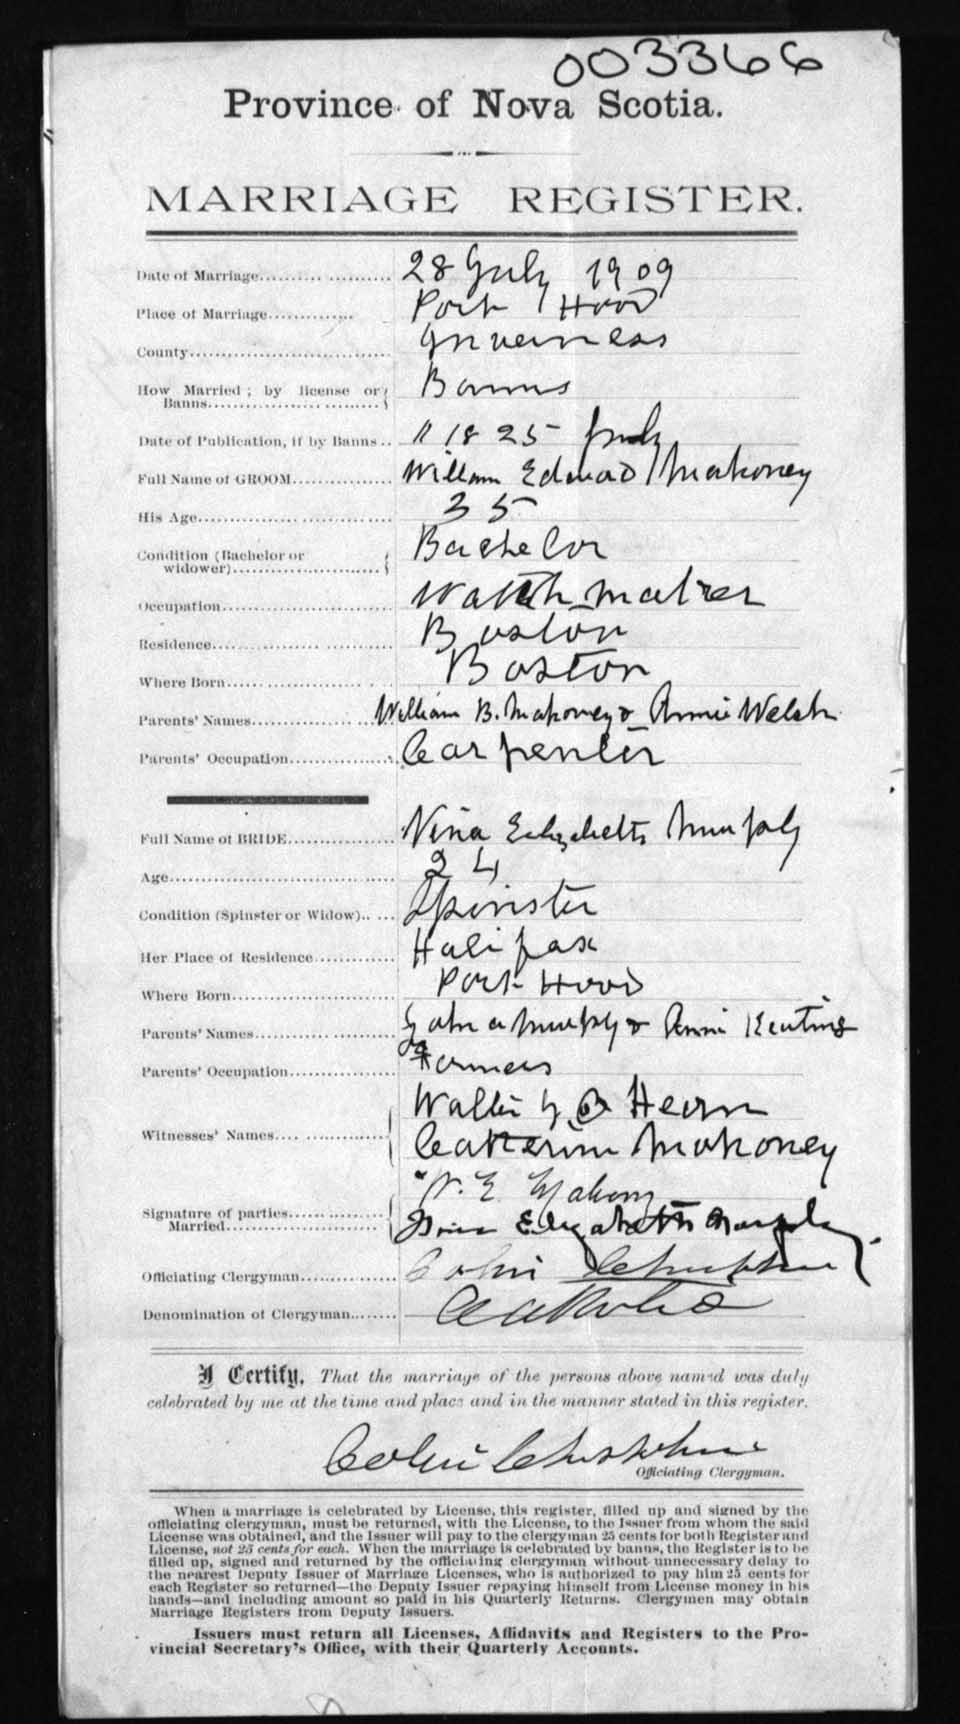 003366
Province of Nova Scotia.
MARRIAGE REGISTER.
Date of Marriage.................... 28 July 1909
Place of Marriage.............. Port Hood
County................................. Inverness
How Married; by license or
Banns.......................... Banns
Date of Publication, if by Banns.. 11 18 25 July
Full Name of GROOM................ William Edward Mahoney
His Age............................... 35
Condition (Bachelor or
widower)......................... Bachelor
Occupation............................ Watch maker
Residence.............................. Boston
Where Born........................... Boston
Parents' Names.................... William B. Mahoney & Annie Welsh
Parents' Occupation................ Carpenter
Full Name of BRIDE................ Nina Elizabeth Murphy
Age..................................... 24
Condition (Spinster or Widow)...... Spinster
Her Place of Residence............. Halifax
Where Born........................... Port Hood
Parents' Names...................... John a Murphy & Annie Keating
Parents' Occupation................ Farmers
Witnesses' Names.................. Walter Hearn
Catherine Mahoney
Signature of parties............... W. E. Mahony
Married....................... Nina Elizabeth Murphy.
Officiating Clergyman............... Colin Chisholm
Denomination of Clergyman........ Catholic
I Certify, That the marriage of the persons above named was duly
celebrated by me at the time and place and in the manner stated in this register.
Colin Chisholm
Officiating Clergyman.
When a marriage is celebrated by License, this register, filled up and signed by the
officiating clergyman, must be returned, with the License, to the Issuer from whom the said
License was obtained, and the Issuer will pay to the clergyman 25 cents for both Register and
License, not 25 cents for each. When the marriage is celebrated by banns, the Register is to be
filled up, signed and returned by the officiating clergyman without unnecessary delay to
the nearest Deputy Issuer of Marriage Licenses, who is authorized to pay him 25 cents for
each Register so returned—the Deputy Issuer repaying himself from License money in his
hands—and including amount so paid in his Quarterly Returns. Clergymen may obtain
Marriage Registers from Deputy Issuers.
Issuers must return all Licenses, Affidavits and Registers to the Pro-
vincial Secretary's Office, with their Quarterly Accounts.